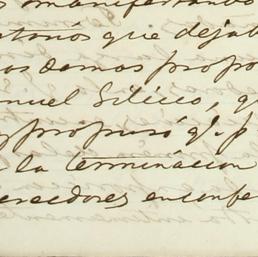 manifestando
antonios que dejab
os demas propo
nuel Silicco, q
propuso q/. p
la terminacion
creedores en confe